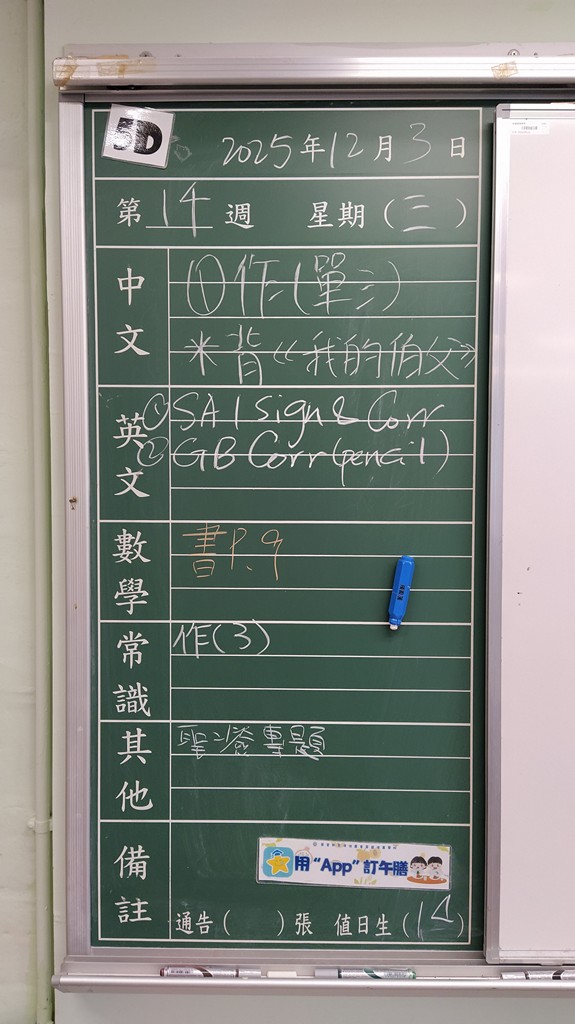 5D
2025年12月3日
第14週 星期(三)
中文
①作(單三)
*背《我的伯父》
英文
①SA1 Sign & Corr
②GB Corr(pencil)
數學
書P.9
常識
作(3)
其他
專題
備註
用“App”訂午膳
通告( )張 值日生(14)